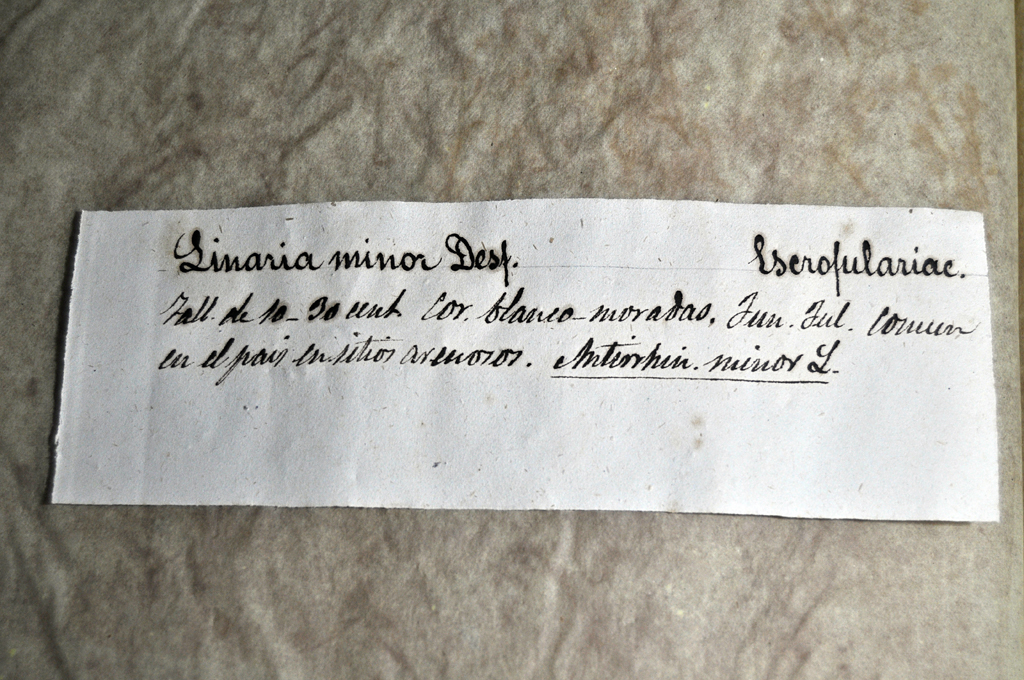 Linaria minor Desf. Escrofulariac.
Tall. de 10-30 cent Cor. blanco-moradas, Jun. Jul. Comun
en el pais en sitios arenosos. Antirrhin. minor L.